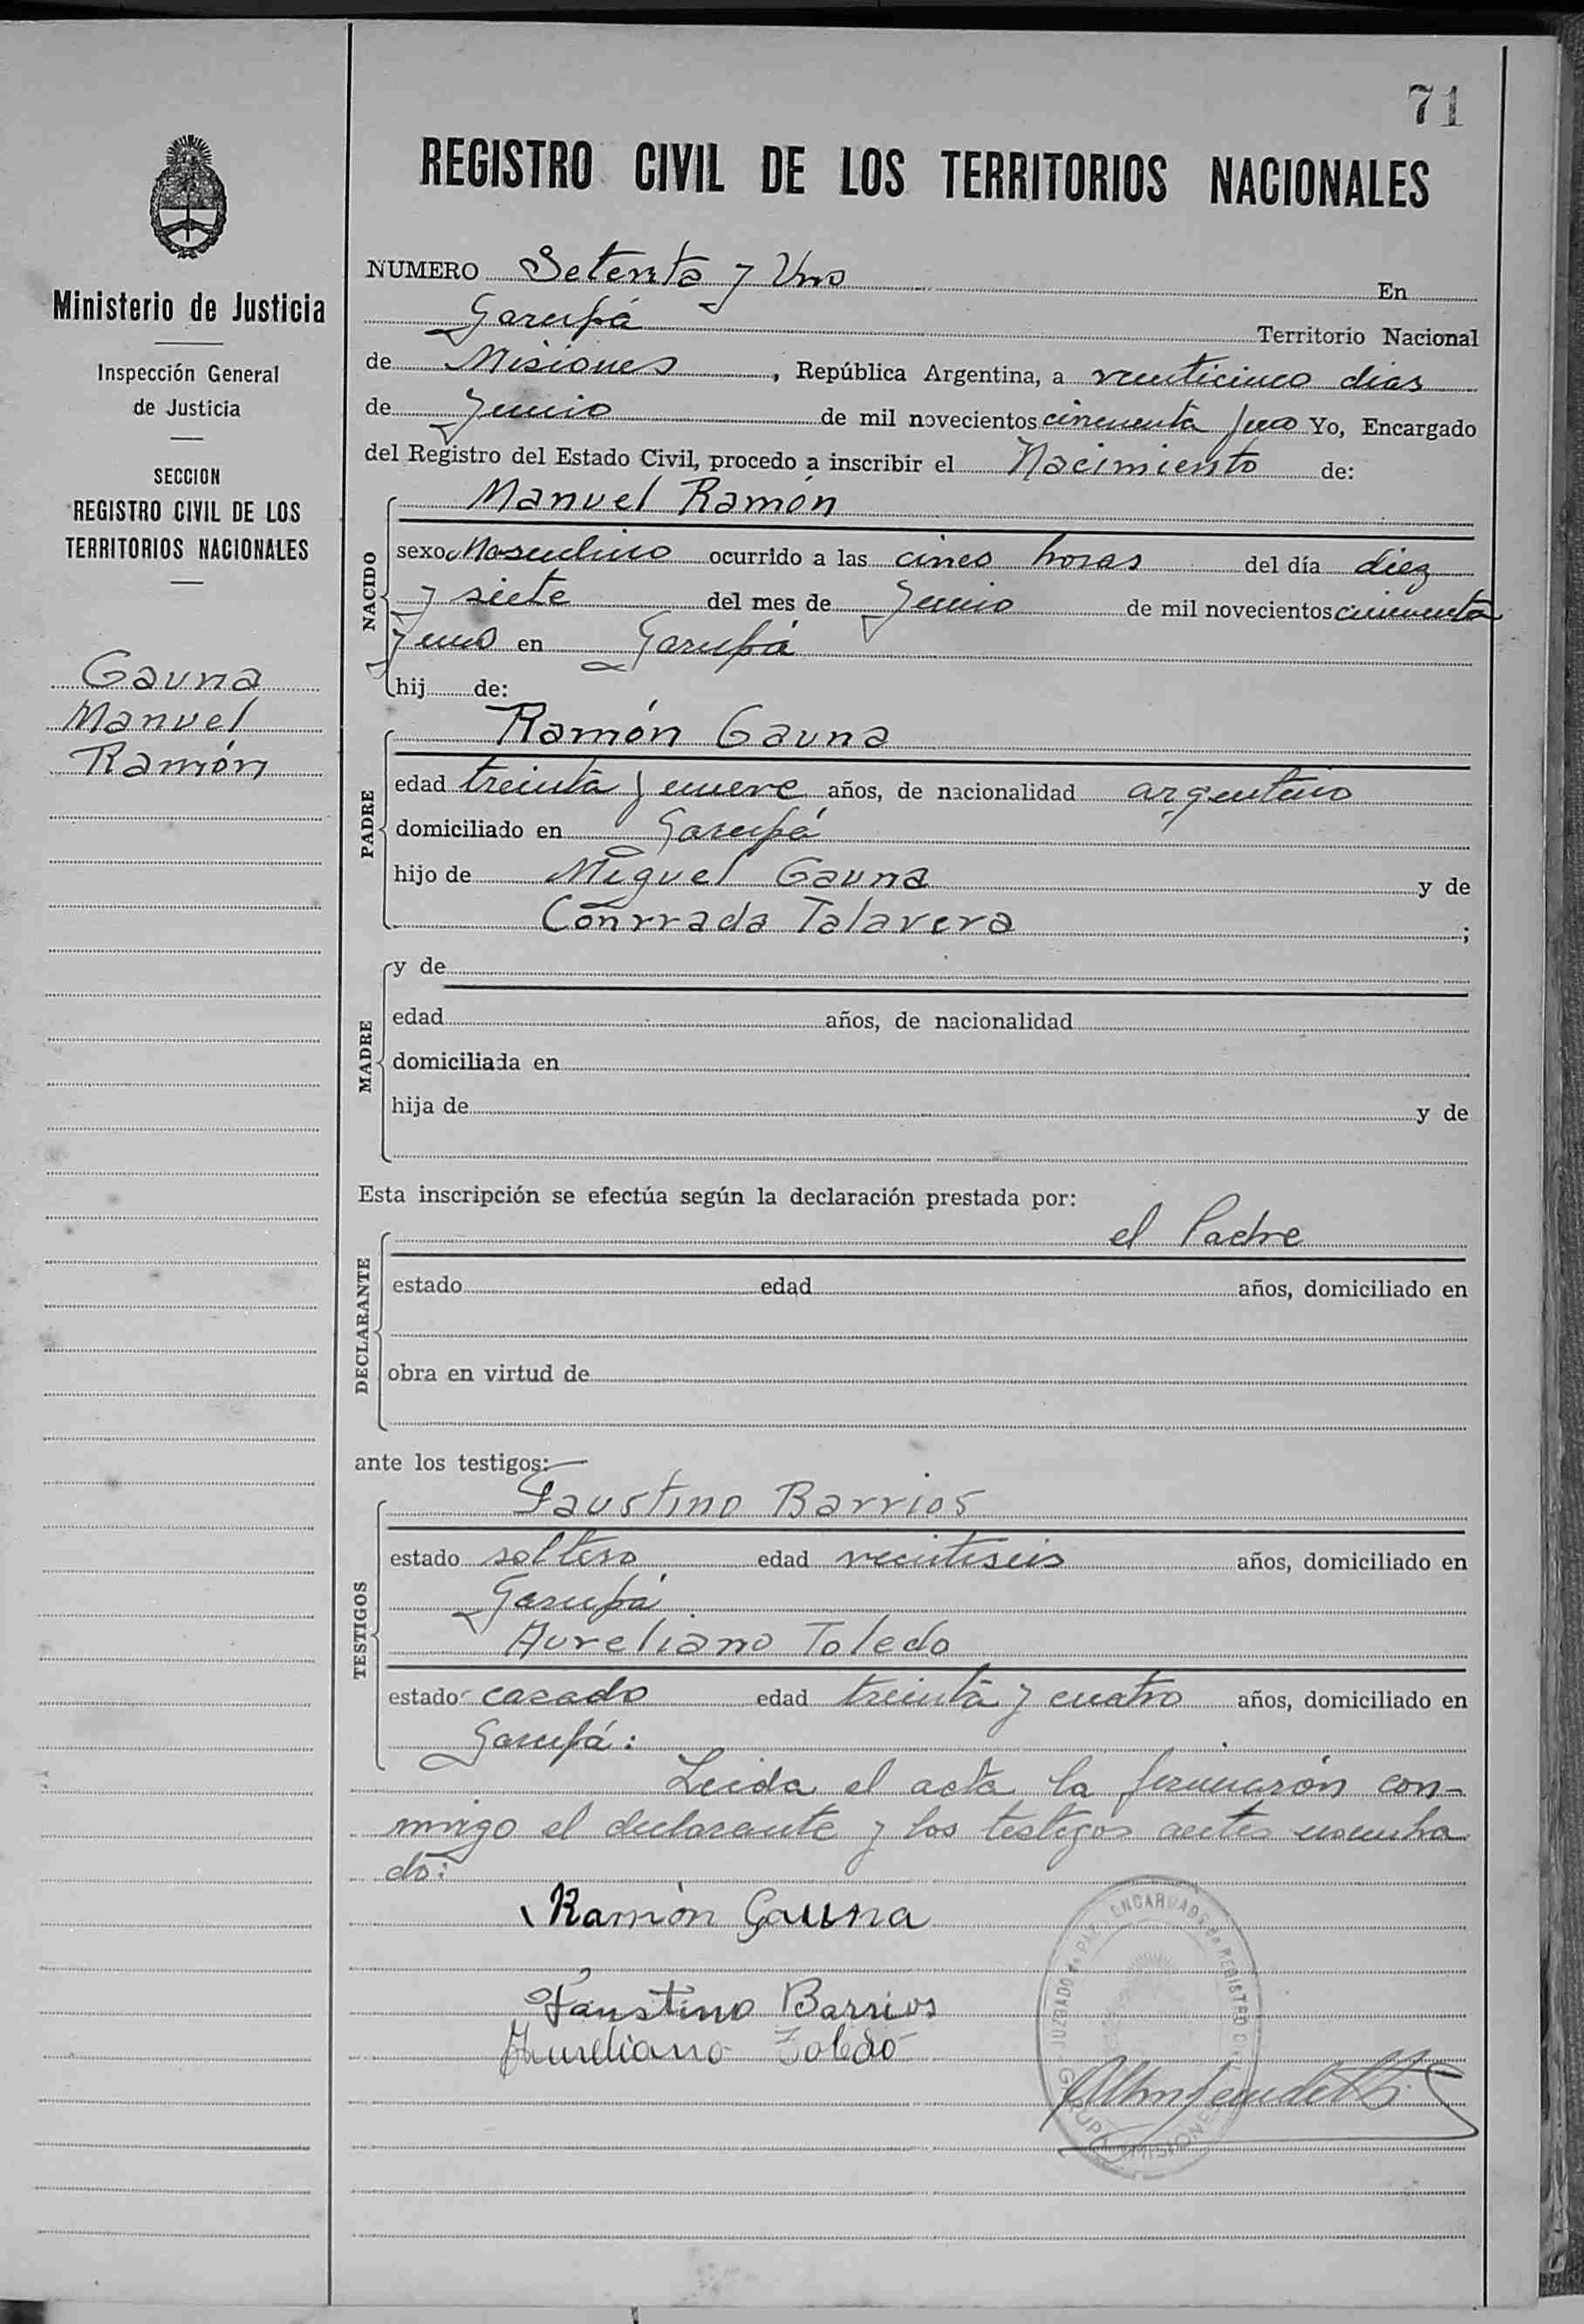 71
REGISTRO CIVIL DE LOS TERRITORIOS NACIONALES
Ministerio de Justicia
Inspección General
de Justicia
SECCION
REGISTRO CIVIL DE LOS
TERRITORIOS NACIONALES
Gauna
Manuel
Ramón
NUMERO Setenta y Uno En
Garupá Territorio Nacional
de Misiones, República Argentina, a veinticinco dias
de Junio de mil novecientos cincuenta y uno Yo, Encargado
del Registro del Estado Civil, procedo a inscribir el Nacimiento de:
Manuel Ramón
NACIDO
sexo Masculino ocurrido a las cinco horas del día diez
y siete del mes de Junio de mil novecientos cincuenta
y uno en Garupá
hij de:
Ramón Gauna
PADRE
edad treinta y nueve años, de nacionalidad argentino
domiciliado en Garupá
hijo de Miguel Gauna y de
Conrrada Talavera ;
MADRE
y de
edad años, de nacionalidad
domiciliada en
hija de y de
Esta inscripción se efectúa según la declaración prestada por:
el Padre
DECLARANTE
estado edad años, domiciliado en
obra en virtud de
ante los testigos:
Faustino Barrios
TESTIGOS
estado soltero edad veintiseis años, domiciliado en
Garupá
Aureliano Toledo
estado casado edad treinta y cuatro años, domiciliado en
Garupá:
Leida el acta la firmarón con-
migo el declarante y los testigos antes
do:
Ramón Gauna
Faustino Barrios
Aureliano Toledo
JUZGADO de PAZ y ENCARGADO de REGISTRO CIVIL
GARUPA MISIONES